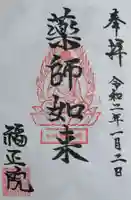 奉拝
令和二年一月二日
薬師如来
福正院